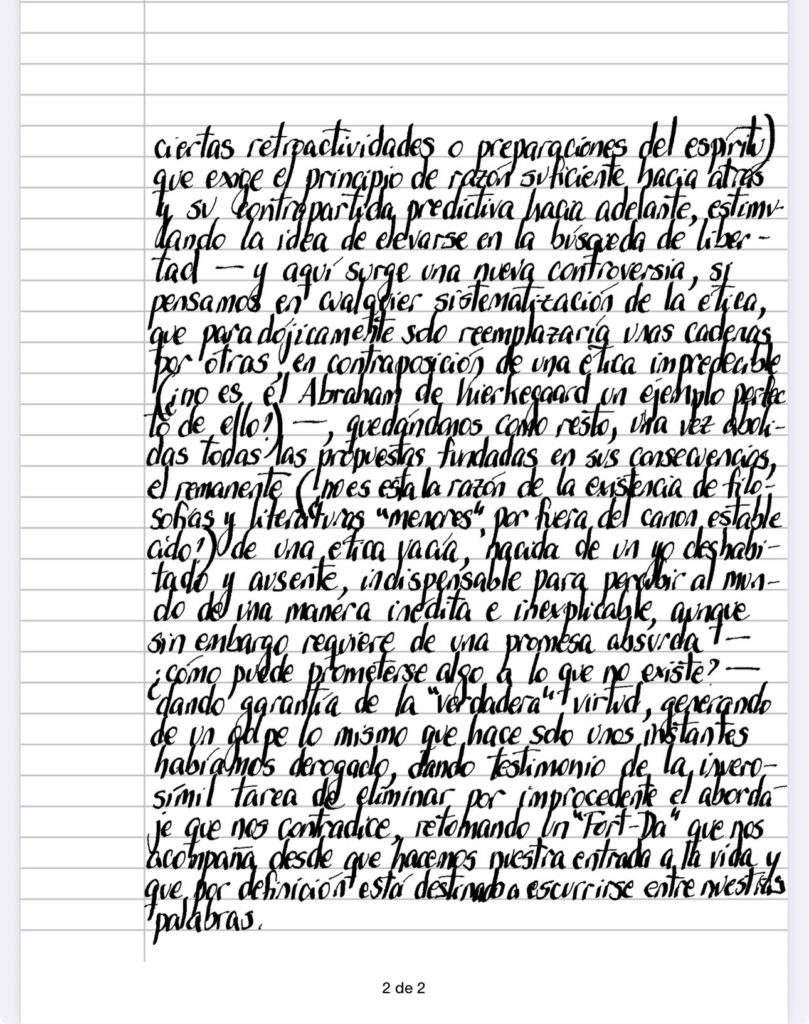 ciertas retroactividades o preparaciones del espíritu)
que exige el principio de razón suficiente hacia atrás
y su contrapartida predictiva hacia adelante, estimu-
lando la idea de elevarse en la búsqueda de liber-
tad — y aquí surge una nueva controversia, si
pensamos en cualquier sistematización de la ética,
que paradójicamente solo reemplazaría unas cadenas
por otras, en contraposición de una ética impredecible
(¿no es él Abraham de Kierkegaard un ejemplo perfec
to de ello?) —, quedándonos como resto, una vez aboli-
das todas las propuestas fundadas en sus consecuencias,
el remanente (¿no es esta la razón de la existencia de filo-
sofías y literaturas "menores", por fuera del canon estable
cido?) de una ética vacía, nacida de un yo deshabi-
tado y ausente, indispensable para percibir al mun-
do de una manera inédita e inexplicable, aunque
sin embargo requiere de una promesa absurda —
¿cómo puede prometerse algo a lo que no existe? —
dando garantía de la "verdadera" virtud, generando
de un golpe lo mismo que hace solo unos instantes
habíamos derogado, dando testimonio de la invero-
símil tarea de eliminar por improcedente el aborda
je que nos contradice, retomando un "Fort-Da" que nos
acompaña desde que hacemos nuestra entrada a la vida y
que por definición está destinado a escurrirse entre nuestras
palabras.
2 de 2